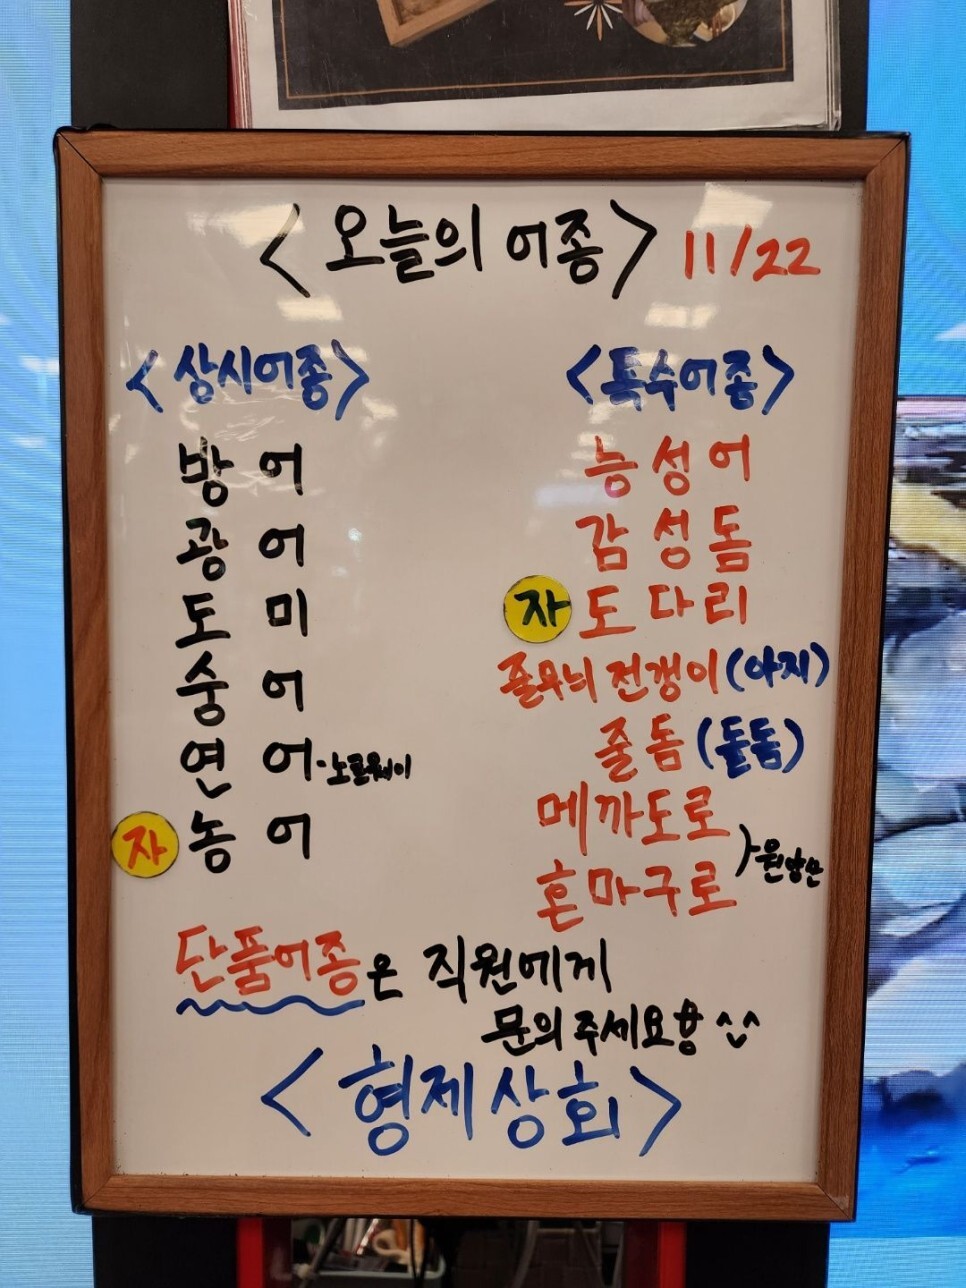 <오늘의 어종> 11/22
<상시어종>
방어
광어
도미
숭어
연어 · 노르웨이
자 농어
<특수어종>
능성어
감성돔
자 도다리
줄무늬 전갱이 (아지)
줄돔 (돌돔)
메까도로
혼마구로
원양산
단품어종은 직원에게
문의주세요용 ^^
<형제상회>